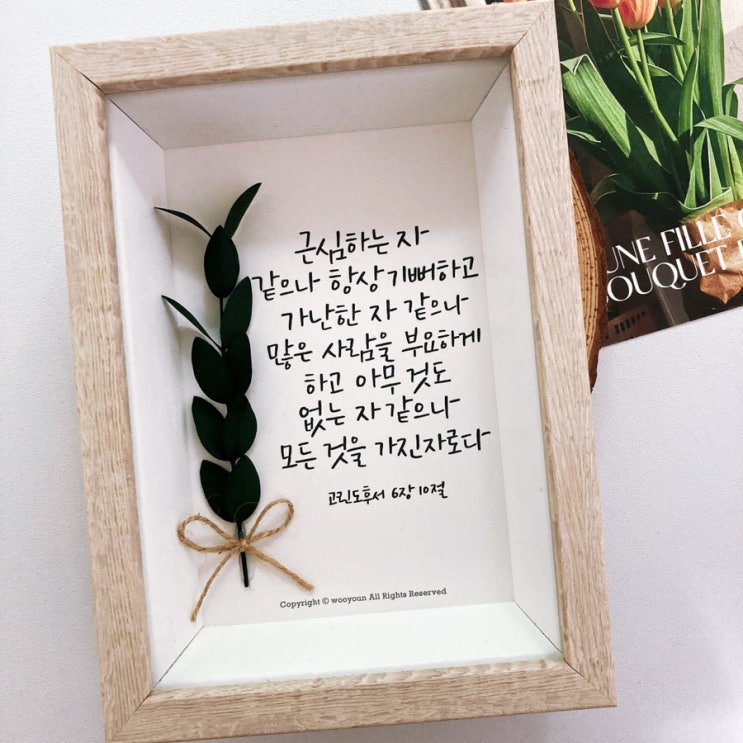 근심하는 자
같으나 항상 기뻐하고
가난한 자 같으나
많은 사람을 부요하게
하고 아무 것도
없는 자 같으나
모든 것을 가진자로다
고린도후서 6장 10절
Copyright © wooyoun All Rights Reserved
UNE FILLE
OUQUET